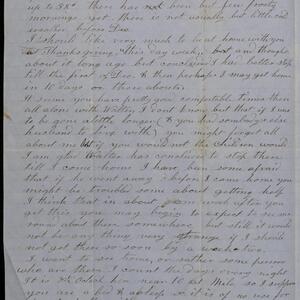 up to 38° there has not been but few frosty
mornings yet there is not usually but little cold
weather before Dec.
I should like very much to be at home with you
at Thanksgiving this day week, but am thought
about it long ago but concluded I had better stop
till the first of Dec. & then perhaps I may get home
in 10 days or there abouts
It seems you have pretty comfortable times then
all alone with Walter, & I don't know but that if I was
to be gone a little longer (& you had somebody else
husband to live with) you might forget all
about me but if you would not the children would
I am glad Walter has continued to stop there
till I come home. I have been some afraid
that if he went away before I came home you
might be troubled some about getting help
I think that in about a week after you
get this you may begin to expect to see me
round about there somewhere but still it would
not be any thing very strange if I should
not get there so soon by a week or two
I want to see home, or rather some person
who are there. I count the days every night
It is 7½ Oclock here near 10 at Mile so I suppose
you are a bed & asleep & it is of no use for